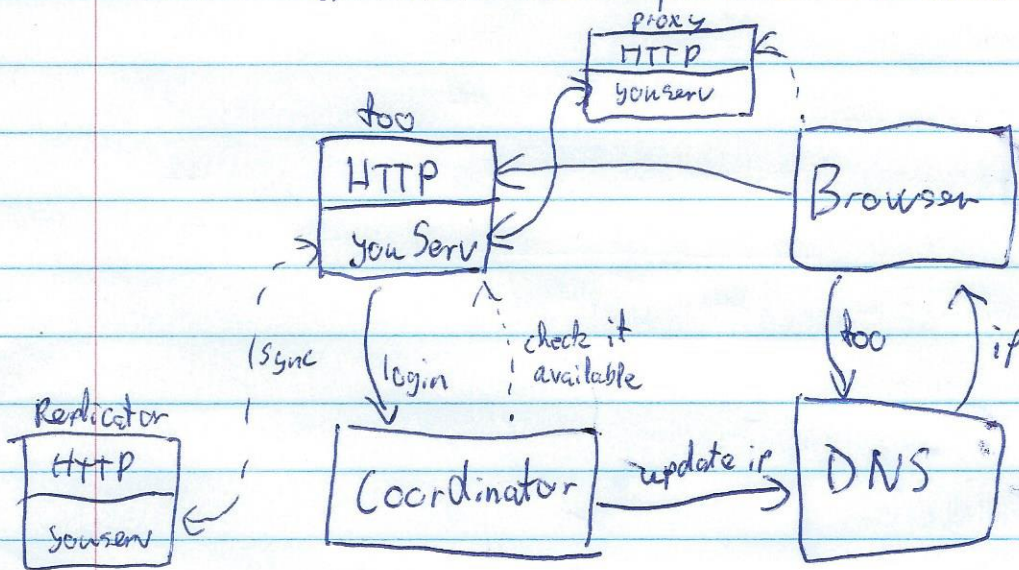 proxy
HTTP
youserv
foo
HTTP
youServ
Browser
sync
login
check if
available
foo
ip
Replicator
HTTP
youserv
Coordinator
update ip
DNS